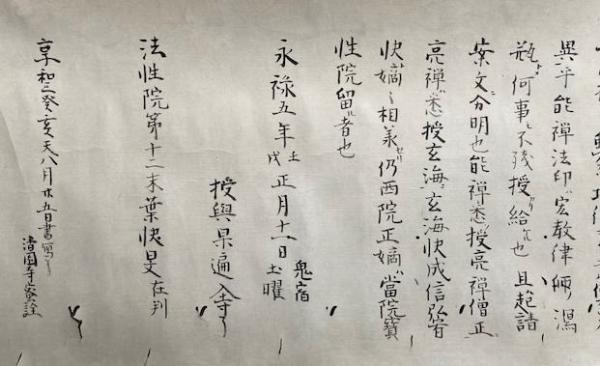 異乎能禪法印宏教律師瀉
瓶何事不殘授給也且起請
案文分明也能禪悉授亮禪僧正
亮禪悉授玄海玄海快成信弘宥
快嫡々相承仍西院正嫡當院寶
性院留者也
永祿五年壬戌正月十一日鬼宿土曜
授與杲遍入寺了
法性院第十二末葉快旻在判
享和三癸亥天八月廿五日書寫了